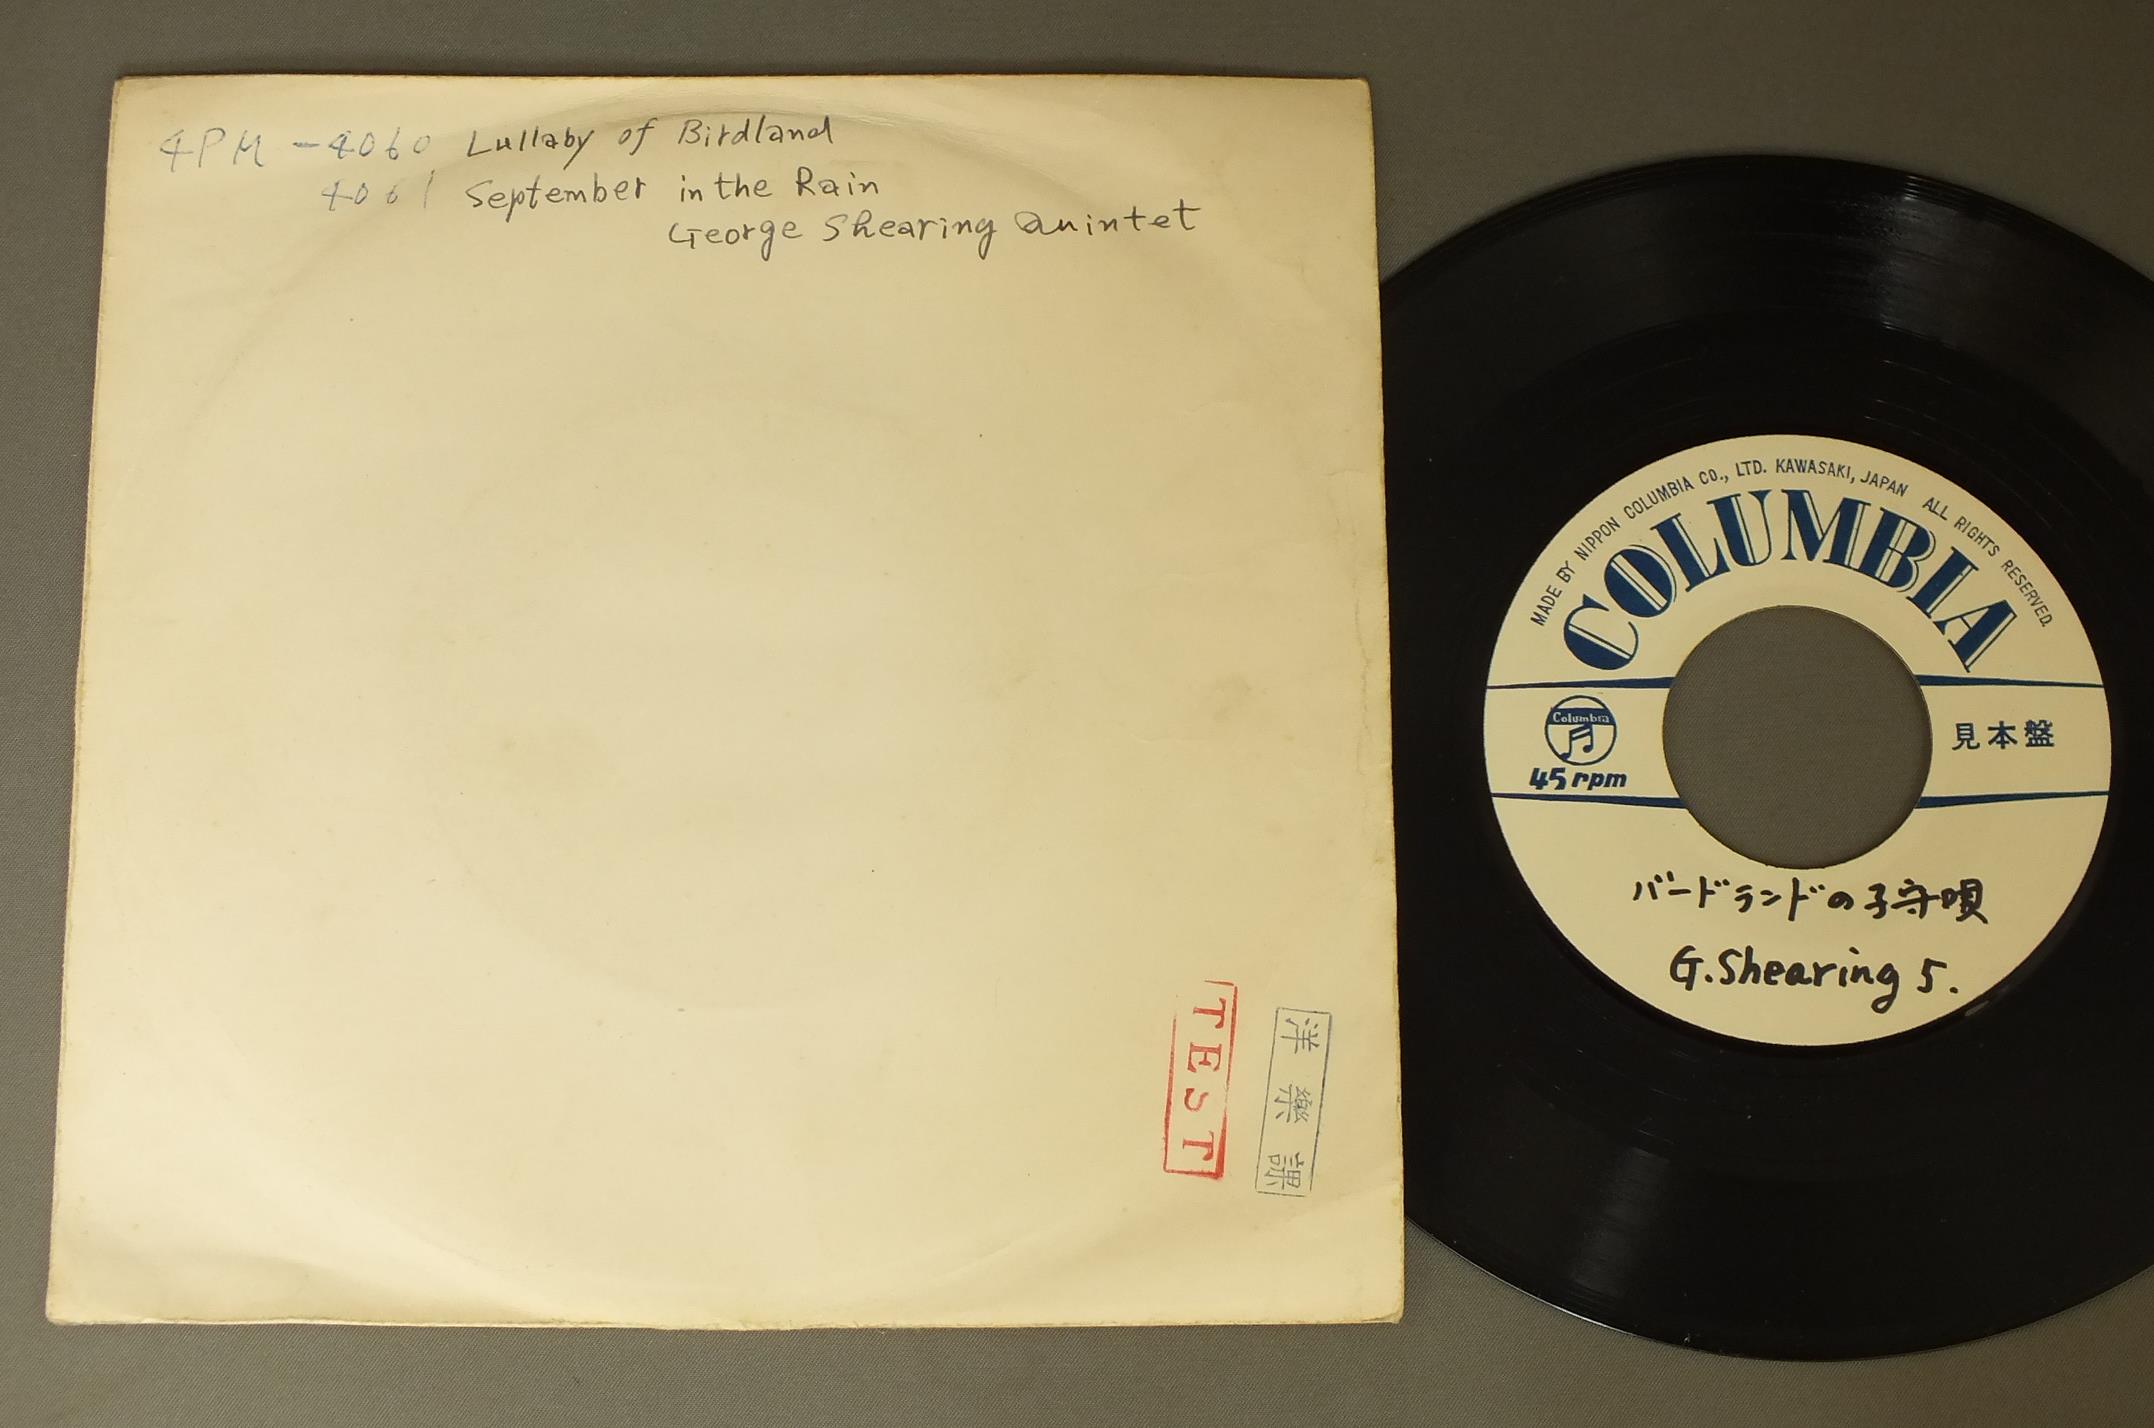 4PM-4060 Lullaby of Birdland
4061 September in the Rain
George Shearing Quintet
TEST
洋樂課
MADE BY NIPPON COLUMBIA CO., LTD. KAWASAKI, JAPAN ALL RIGHTS RESERVED.
COLUMBIA
Columbia
45 rpm
見本盤
バードランドの子守唄
G. Shearing 5.